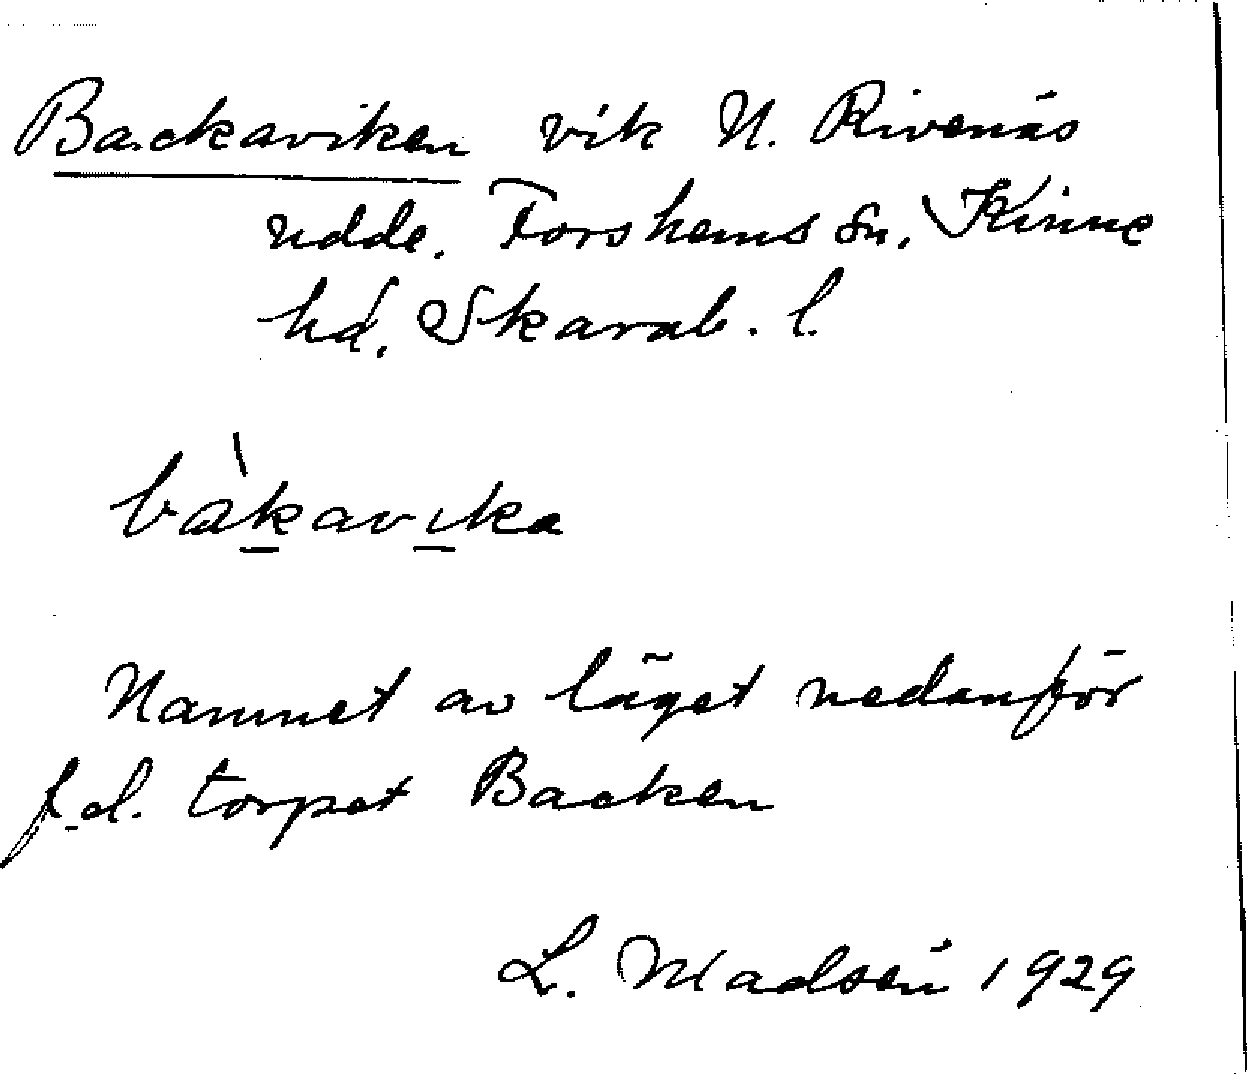 Backaviken vik N. Rivenäs
udde. Forshems sn, Kinne
hd, Skarab. l.
bàkavika
Namnet av läget nedanför
f.d. torpet Backen
L. Madsén 1929